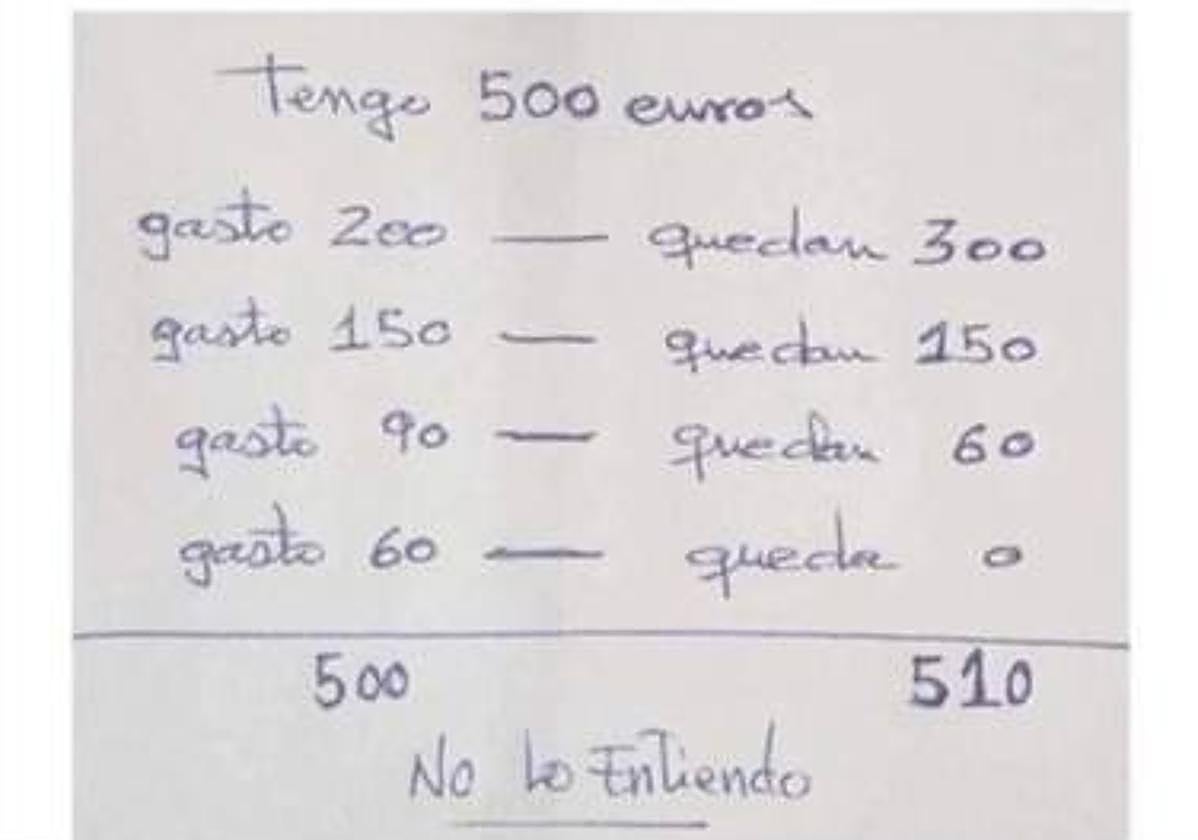 Tengo 500 euros
gasto 200 — quedan 300
gasto 150 — quedan 150
gasto 90 — quedan 60
gasto 60 — queda 0
500 510
No lo Entiendo